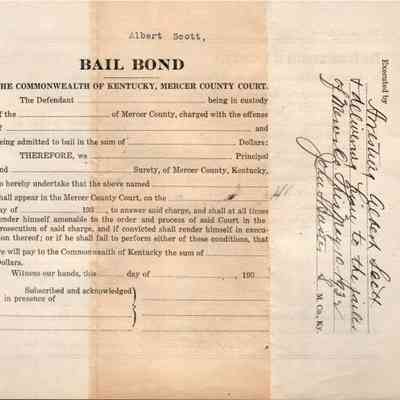 Albert Scott,
BAIL BOND
THE COMMONWEALTH OF KENTUCKY, MERCER COUNTY COURT.
The Defendant being in custody
of the of Mercer County, charged with the offense
of and
being admitted to bail in the sum of Dollars:
THEREFORE, we Principal
and Surety, of Mercer County, Kentucky,
do hereby undertake that the above named
shall appear in the Mercer County Court, on the
day of 193 , to answer said charge, and shall at all times
render himself amenable to the order and process of said Court in the
prosecution of said charge, and if convicted shall render himself in execu-
tion thereof; or if he shall fail to perform either of these conditions, that
we will pay to the Commonwealth of Kentucky the sum of
Dollars.
Witness our hands, this day of , 193
Subscribed and acknowledged
in presence of
Executed by
Arresting Albert Scott
& delivering him to the jailer
of Mercer Co 10 1932
John
S M. Co., Ky.